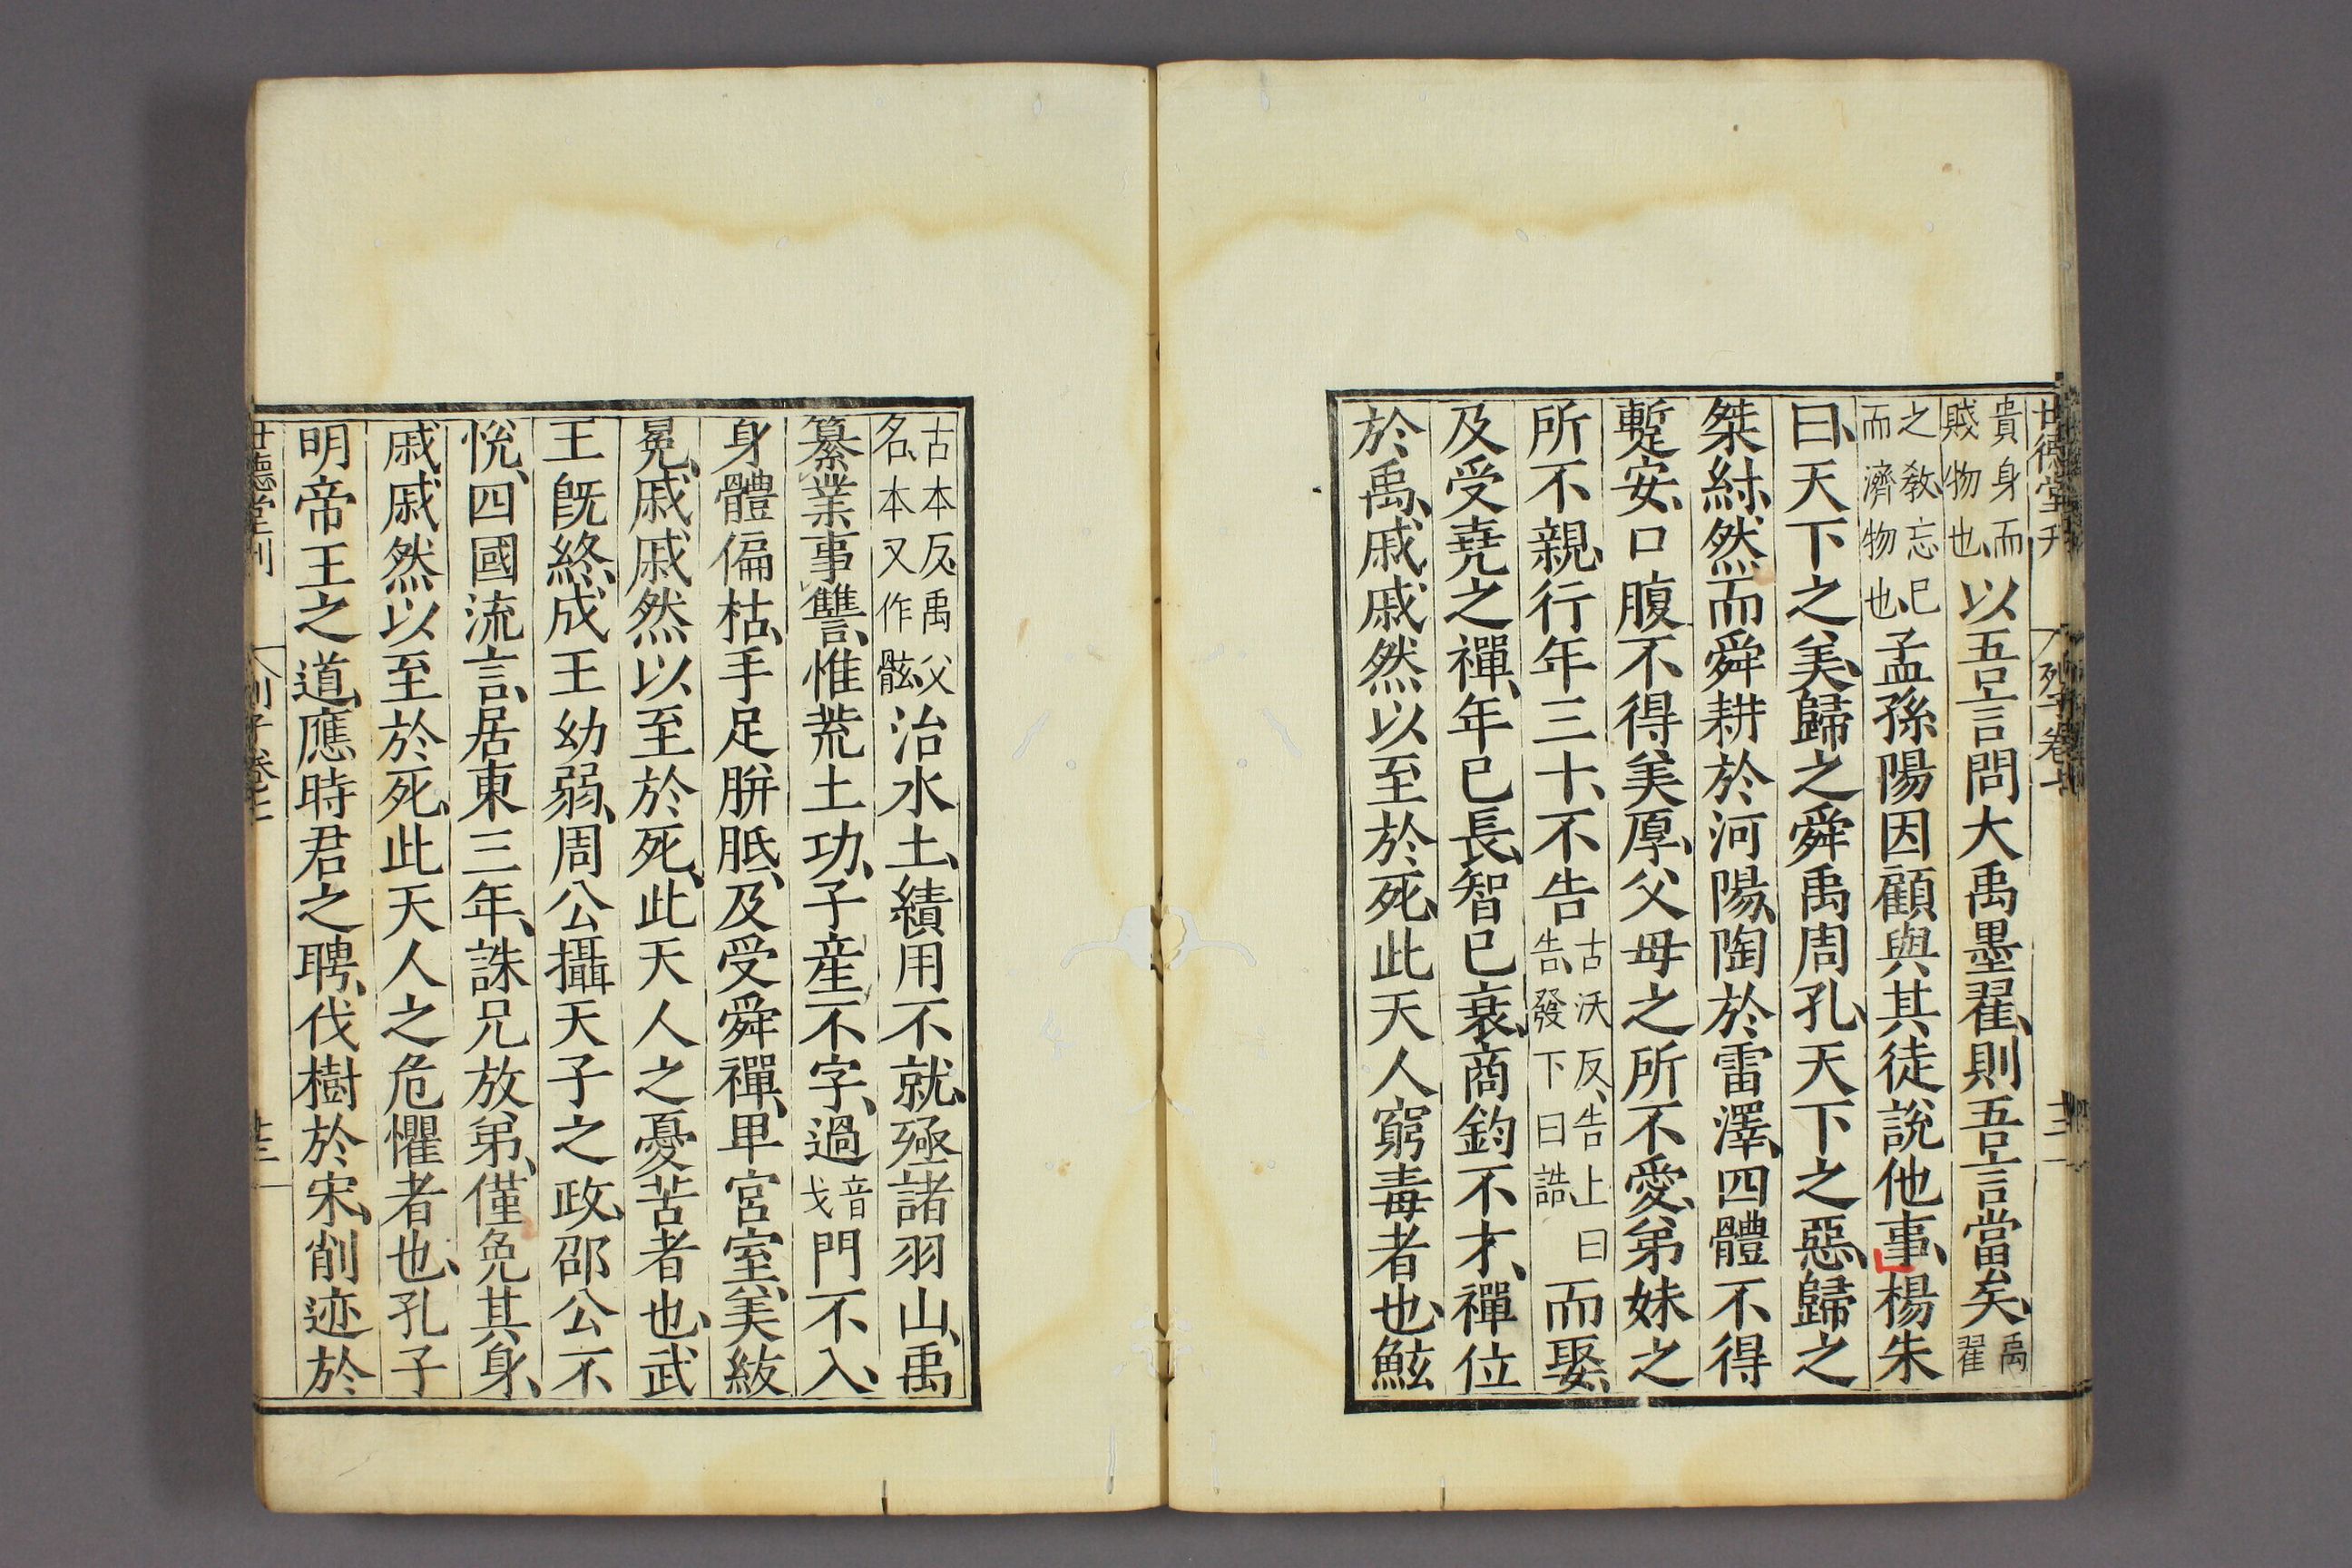 世德堂刊 列子卷七 十二
貴身而賤物也以吾言問大禹墨翟則吾言當矣禹翟
之教忘己而濟物也孟孫陽因顧與其徒說他事楊朱
曰天下之美歸之舜禹周孔天下之惡歸之
桀紂然而舜耕於河陽陶於雷澤四體不得
蹔安口腹不得美厚父母之所不愛弟妹之
所不親行年三十不告古沃反告上曰告發下曰誥而娶
及受堯之禪年已長智已衰商鈞不才禪位
於禹戚戚然以至於死此天人窮毒者也鮌
古本反禹父名本又作骸治水土績用不就殛諸羽山禹
纂業事讐惟荒土功子產不字過音戈門不入
身體偏枯手足胼胝及受舜禪卑宮室美紱
冕戚戚然以至於死此天人之憂苦者也武
王旣終成王幼弱周公攝天子之政邵公不
悅四國流言居東三年誅兄放弟僅免其身
戚戚然以至於死此天人之危懼者也孔子
明帝王之道應時君之聘伐樹於宋削迹於
世德堂刊 列子卷七